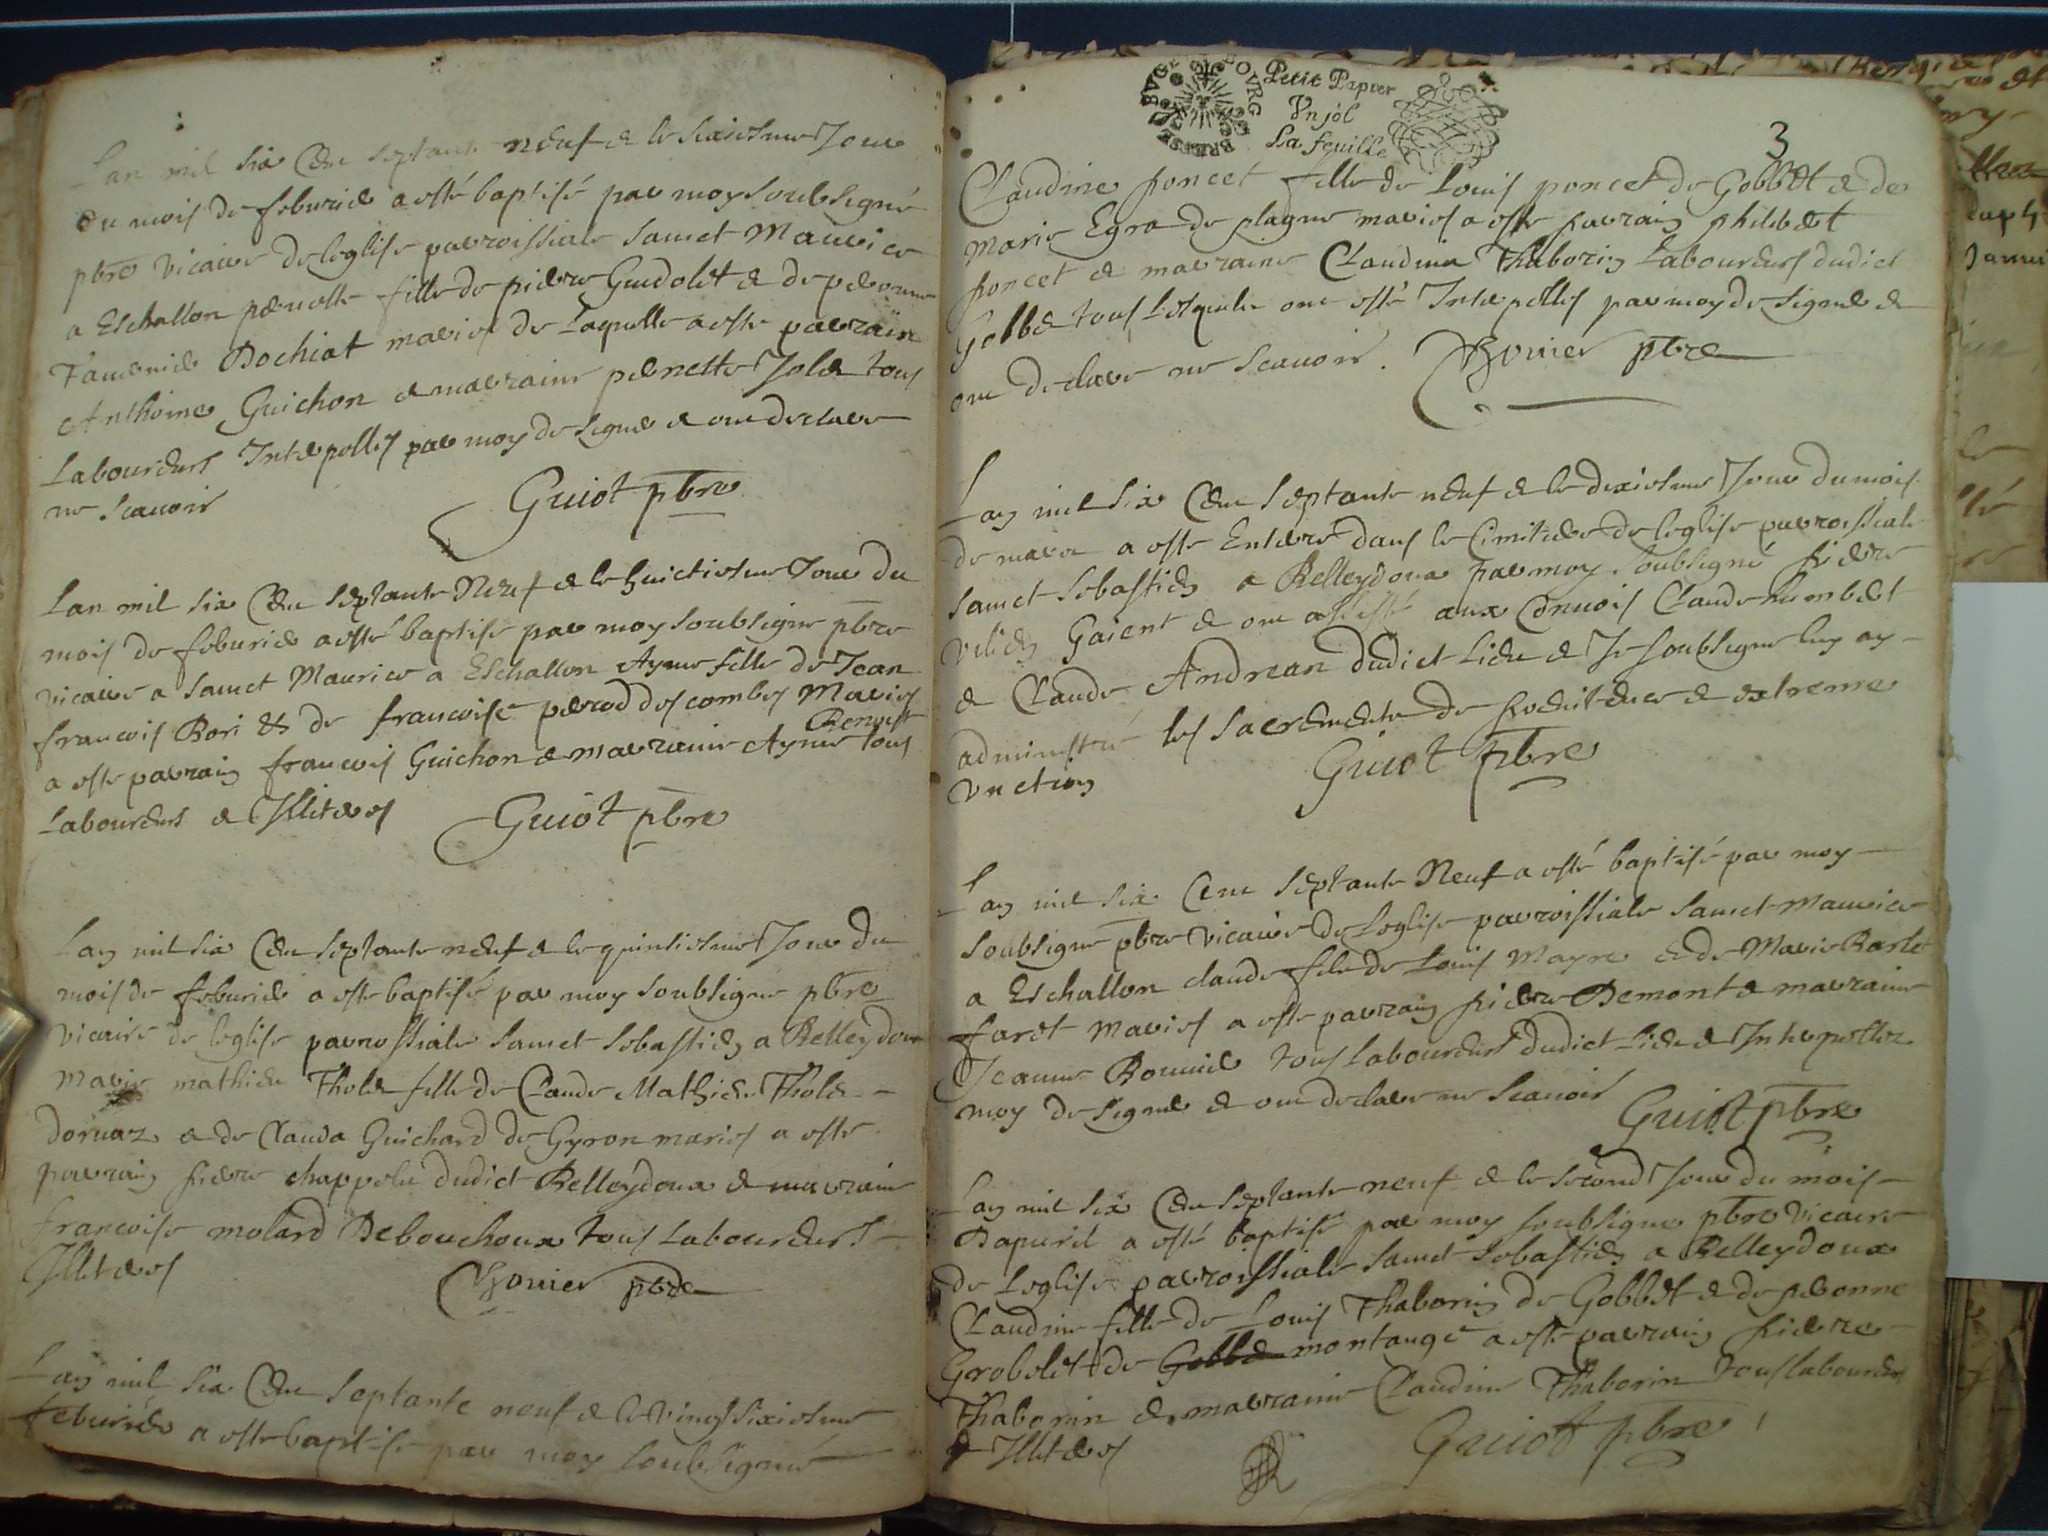 Lan mil six Cen septante neuf & le sixiesme Jour
du mois de feburier a esté baptisé par moy soubsigné
pbre vicaire de leglise parroissiale sainct Maurice
a Eschallon pernette fille de pierre Guidolet & de peronne
Tauernier Bochiat maries de Laquelle a este parrain
Anthoine Guichon & marraine pernette Jolet tous
Laboureurs Interpelles par moy de signer & ont declare
ne scauoir
Guiot pbre
Lan mil six Cen septante Neuf & le huictiesme Jour du
mois de feburier a esté baptise par moy soubsigne pbre
vicaire a sainct Maurice a Eschallon Ayme fille de Jean
francois Bori & de francoise perrod des combes Maries
a este parrain francois Guichon & marraine Ayme Benoist tous
Laboureurs & Illiteres
Guiot pbre
Lan mil six Cen septante neuf & le quinsiesme Jour du
mois de feburier a este baptisé par moy soubsigne pbre
vicaire de leglise parrossiale sainct sebastien a Belleydoux
Marie mathieu Tholet fille de Claude Mathieu Tholet
dornaz & de Clauda Guichard de Gyron maries a este
parrain pierre chappelu dudict Belleydoux & marraine
francoise molard Debouchoux tous Laboureurs
Illiteres
Bouuier pbre
Lan mil six Cen septante neuf & le vingt sixiesme
feburier a este baptise par moy soubsigné
BOVRG BRESSE BVGE
Petit Papier
Vn sol
La feuille
3
Claudine poncet fille de Louis poncet de Gobbet & de
Marie Egra de plagne maries a este parrain philibert
poncet & marraine Claudina Thaborin Laboureurs dudict
Gobbet tous Lesquels ont esté Interpelles par moy de signer &
ont declare ne scauoir.
Bouuier pbre
Lan mil six Cen septante neuf & le dixiesme Jour du mois
de mars a este Enterre dans le Cimitiere de leglise parroissiale
sainct sebastien a Belleydoux par moy soubsigné pierre
Gaient & ont assisté aux Conuois Claude humbert
& Claude Andrean dudict Lieu & Je soubsigne luy ay
administré les sacrements de penitence & extreme
vnction
Guiot pbre
Lan mil six Cent septante Neuf a esté baptisé par moy
soubsigne pbre vicaire de Leglise parroissiale sainct Maurice
a Eschallon claude fils de Louis Mayre & de Marie Barle
faret maries a este parrain pierre Demont & marraine
Jeanne Bonnier tous Laboureurs dudict Lieu & Interpelles
moy de signer & ont declare ne scauoir
Guiot pbre
Lan mil six Cen septante neuf & le second Jour du mois
Dapuril a esté baptisé par moy soubsigne pbre vicaire
de Leglise parroissiale sainct sebastien a Belleydoux
Claudine fille de Louis Thaborin de Gobbet & de peronne
Grobelet de Gobbet montange a este parrain pierre
Thaborin & marraine Claudine Thaborin tous laboureurs
& Illiteres
Guiot pbre